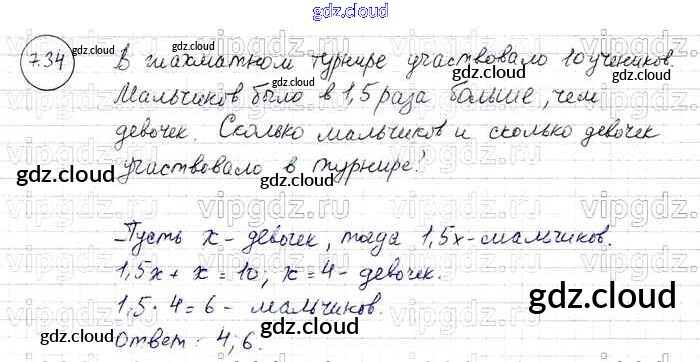 gdz.cloud
734
В шахматном турнире участвовало 10 учеников.
Мальчиков было в 1,5 раза больше, чем
девочек. Сколько мальчиков и сколько девочек
участвовало в турнире?
Пусть x - девочек, тогда 1,5x - мальчиков.
1,5x + x = 10; x = 4 - девочек.
1,5 · 4 = 6 - мальчиков.
Ответ: 4; 6.
gdz.cloud
gdz.cloud
gdz.cloud
gdz.cloud
gdz.cloud
gdz.cloud
gdz.cloud
gdz.cloud
gdz.cloud
gdz.cloud